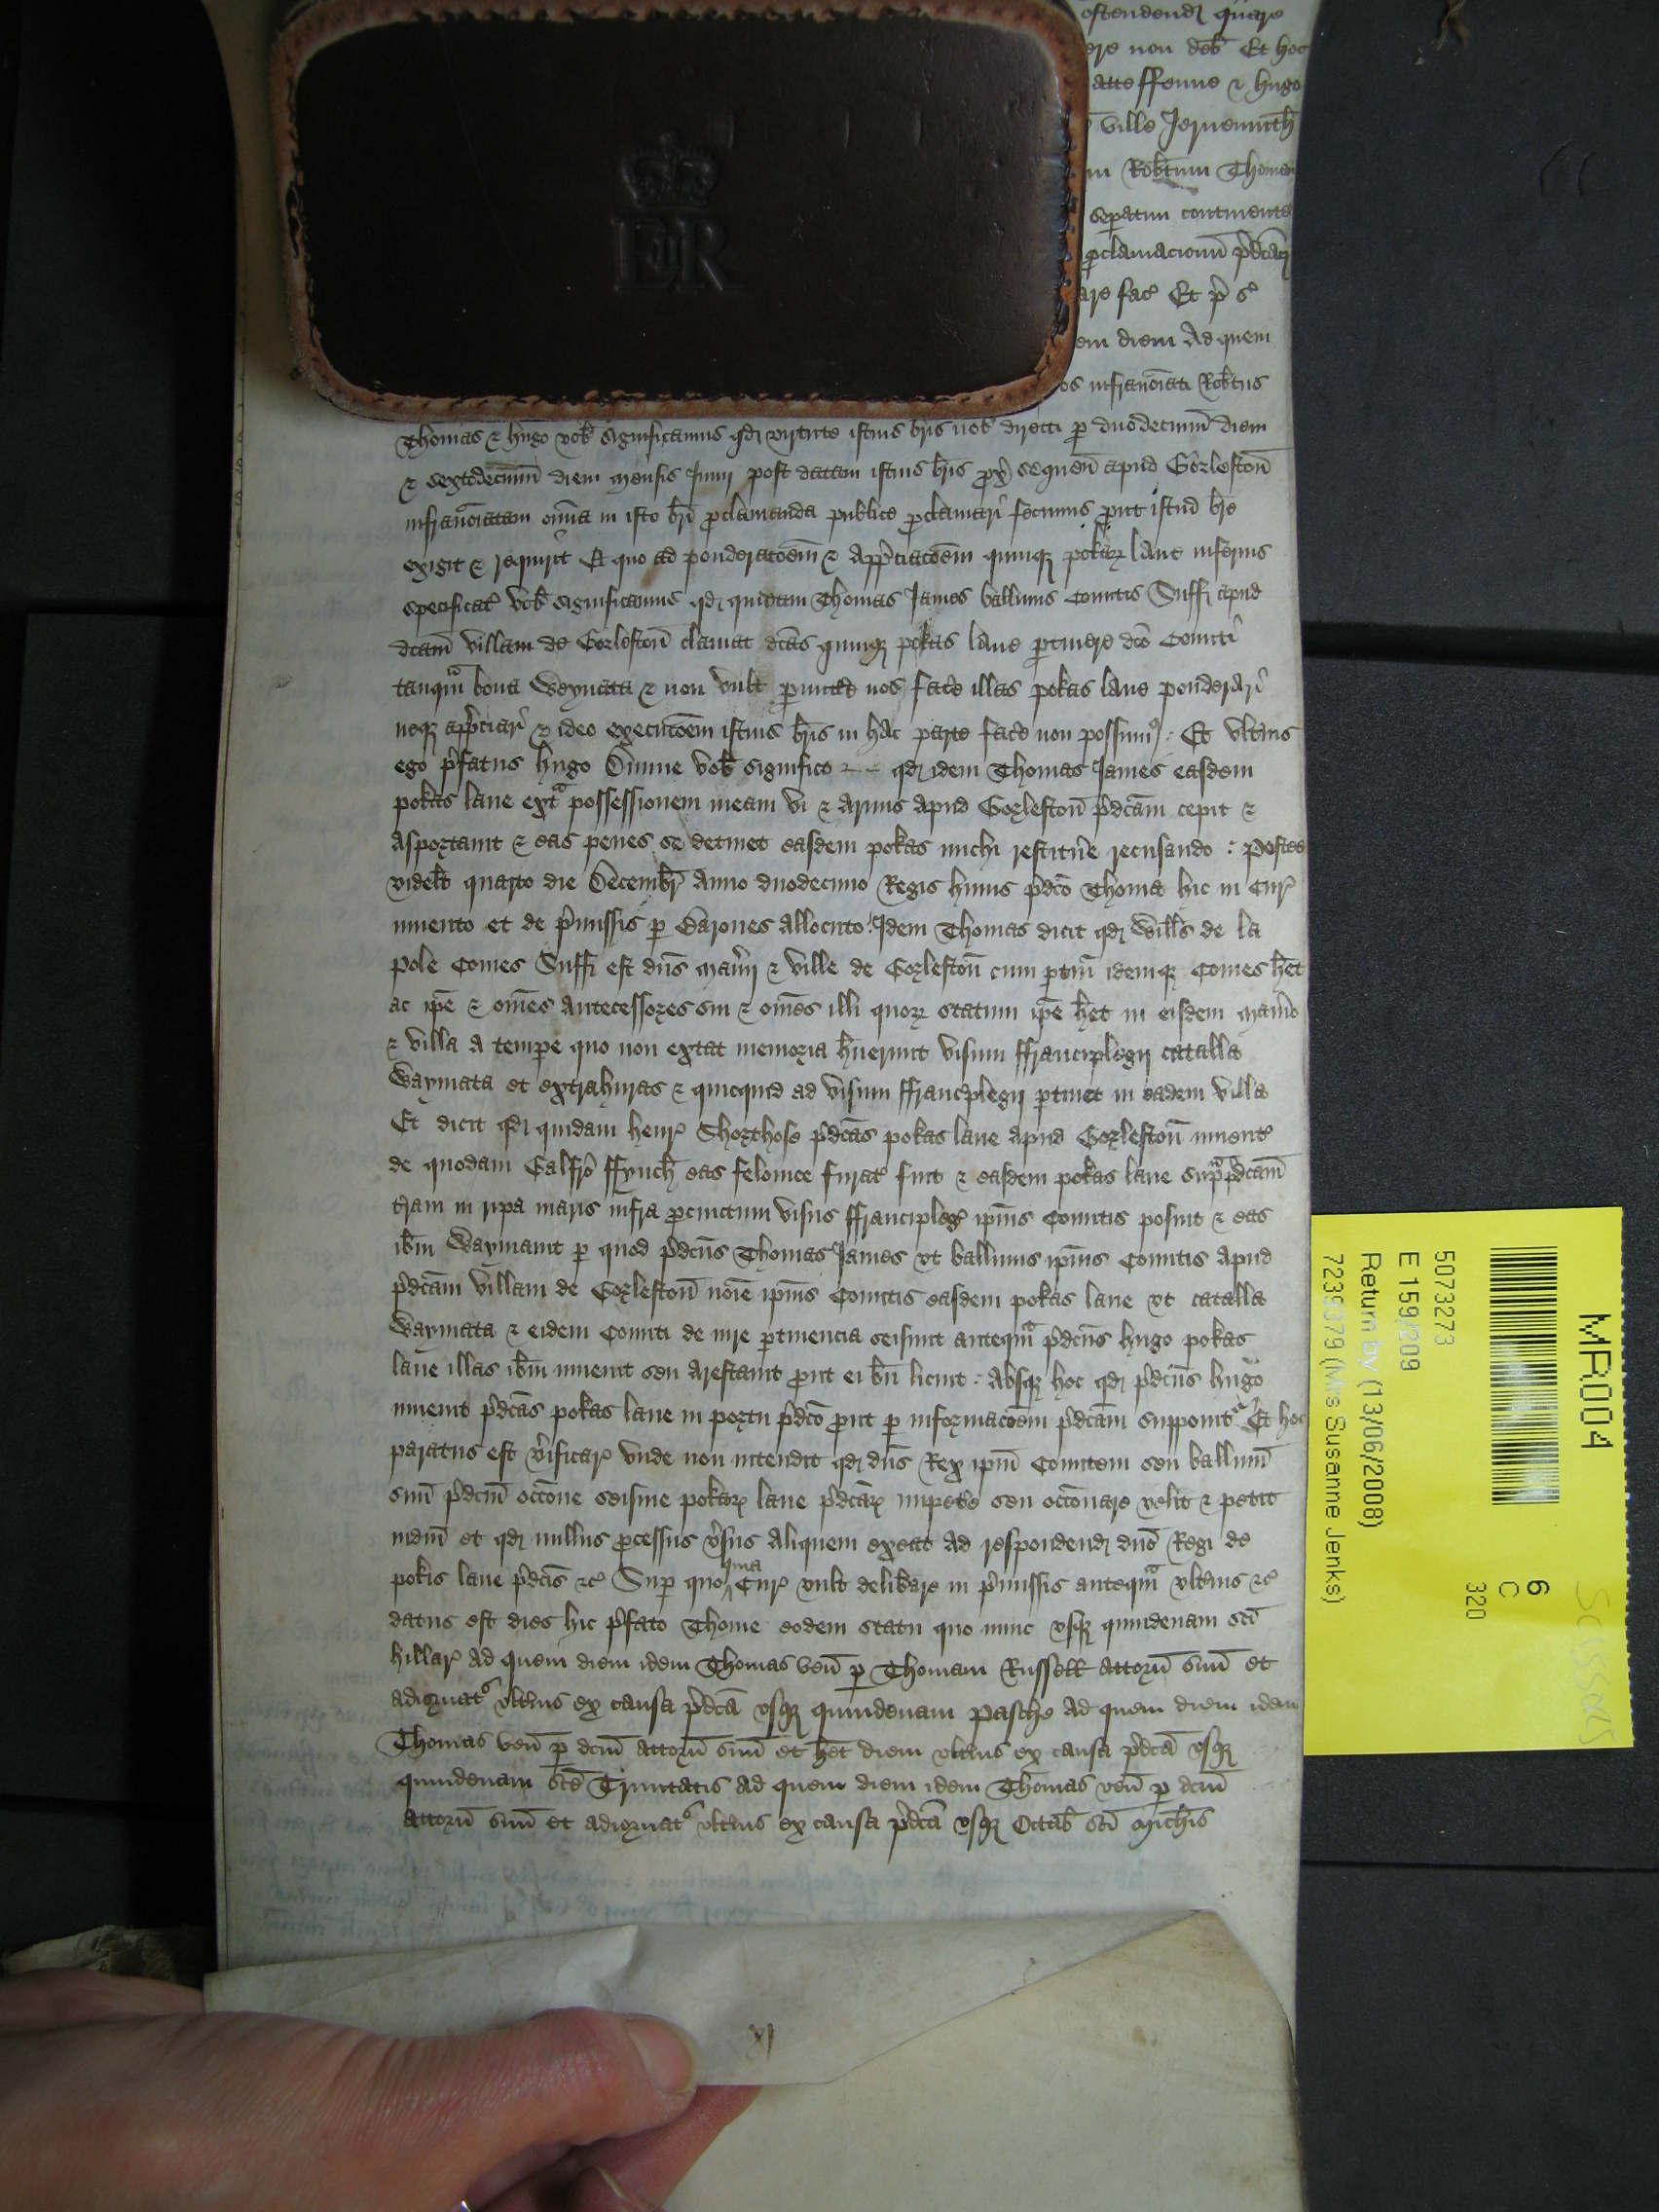 ostendend quare
ere non deb Et hoc
atte ffenne & Hugo
ville Jernemuth
m Robtum Thomam
sepatim continente
pclamacionū p̄dcā
are fac Et p̄
em diem Ad quem
os infranoīati Robtus
EIIR
Thomas & Hugo vob significamus qd virtute istius bris nob directi p duodecimū diem
& sextodecimū diem mensis Junij post datam istius bris px̄ sequen̄ apud Gorlestoñ
infranoīatam om̄ia in isto bri pclamanda publice pclamari fecimus put istud bre
exigit & requirit Et quo ad ponderacōem & app̄ciacōem quinq pokar lane inferius
specificat vob significamus qd quidam Thomas James ballius Comitis Suff apud
dcam villam de Gorlestoñ clamat dcas quinq pokas lane ptinere dco Comiti
tanqm bona Weyuata & non vult pmitte nos face illas pokas lane ponderari
neq app̄ciari & ideo execucōem istius bris in hac parte face non possum9 Et vltius
ego p̄fatus Hugo Dunne vob significo qd idem Thomas James easdem
pokas lane extra possessionem meam vi & armis apud Gorlestoñ p̄dcam cepit &
asportauit & eas penes se detinet easdem pokas michi restitue recusando : Postea
videlt quarto die Decembr Anno duodecimo Regis huius p̄dco Thoma hic in Cur
inuento et de p̄missis p Barones allocuto Idem Thomas dicit qd Wills de la
Pole Comes Suff est dns Man̄ij & ville de Gorlestoñ cum ptin idemq Comes het
ac ipe & om̄es antecessores sui & om̄es illi quor statum ipe het in eisdem Man̄io
& villa a tempe quo non extat memoria huerunt visum ffranciplegij catalla
Waymata et extrahuras & quicquid ad visum ffranciplegij ptinet in eadem villa
Et dicit qd quidam Henr Shorthose p̄dcas pokas lane apud Gorlestoñ inuent
de quodam Galfro ffynch eas felonice furat fuit & easdem pokas lane sup p̄dcam
tram in ripa maris infra pcinctum visus ffrancipleg ipius Comitis posuit & eas
ibm Waymauit p quod p̄dcus Thomas James vt ballius ipius Comitis apud
p̄dcam villam de Gorlestoñ noīe ipius Comitis easdem pokas lane vt catalla
Waymata & eidem Comiti de iure ptinencia seisiuit anteqm p̄dcus Hugo pokas
lane illas ibm inuenit seu arestauit put ei bn licuit : Absq hoc qd p̄dcus Hugo
inuenit p̄dcas pokas lane in portu p̄dco put p informacōem p̄dcam supponit Et hoc
paratus est v̄ificar vnde non intendit qd dns Rex ipm Comitem seu balliuū
suū p̄dcm occōne seisine pokar lane p̄dcar impete seu occōnare velit & petit
iudm̄ et qd nullus pcessus v̄sus aliquem exeat ad respondend dno Regi de
pokis lane p̄dcis &c Sup quo quia Cur vult delibare in p̄missis anteqm vltius &c
datus est dies hic p̄fato Thome eodem statu quo nunc vsq quindenam sci
Hillar Ad quem diem idem Thomas ven̄ p Thomam Russell attorn̄ suū et
adiornat9 vltius ex causa p̄dcā vsq quindenam Pasche Ad quem diem idem
Thomas ven̄ p dcm attorn̄ suū et het diem vltius ex causa p̄dcā vsq
quindenam sce Trinitatis Ad quem diem idem Thomas ven̄ p dcm
attorn̄ suū et adiornat9 vltius ex causa p̄dcā vsq Octab sci Mich̄is
XI
MR004
6
C
320
5073273
E 159/209
Return by (13/06/2008)
7239379 (Mrs Susanne Jenks)
Scissors